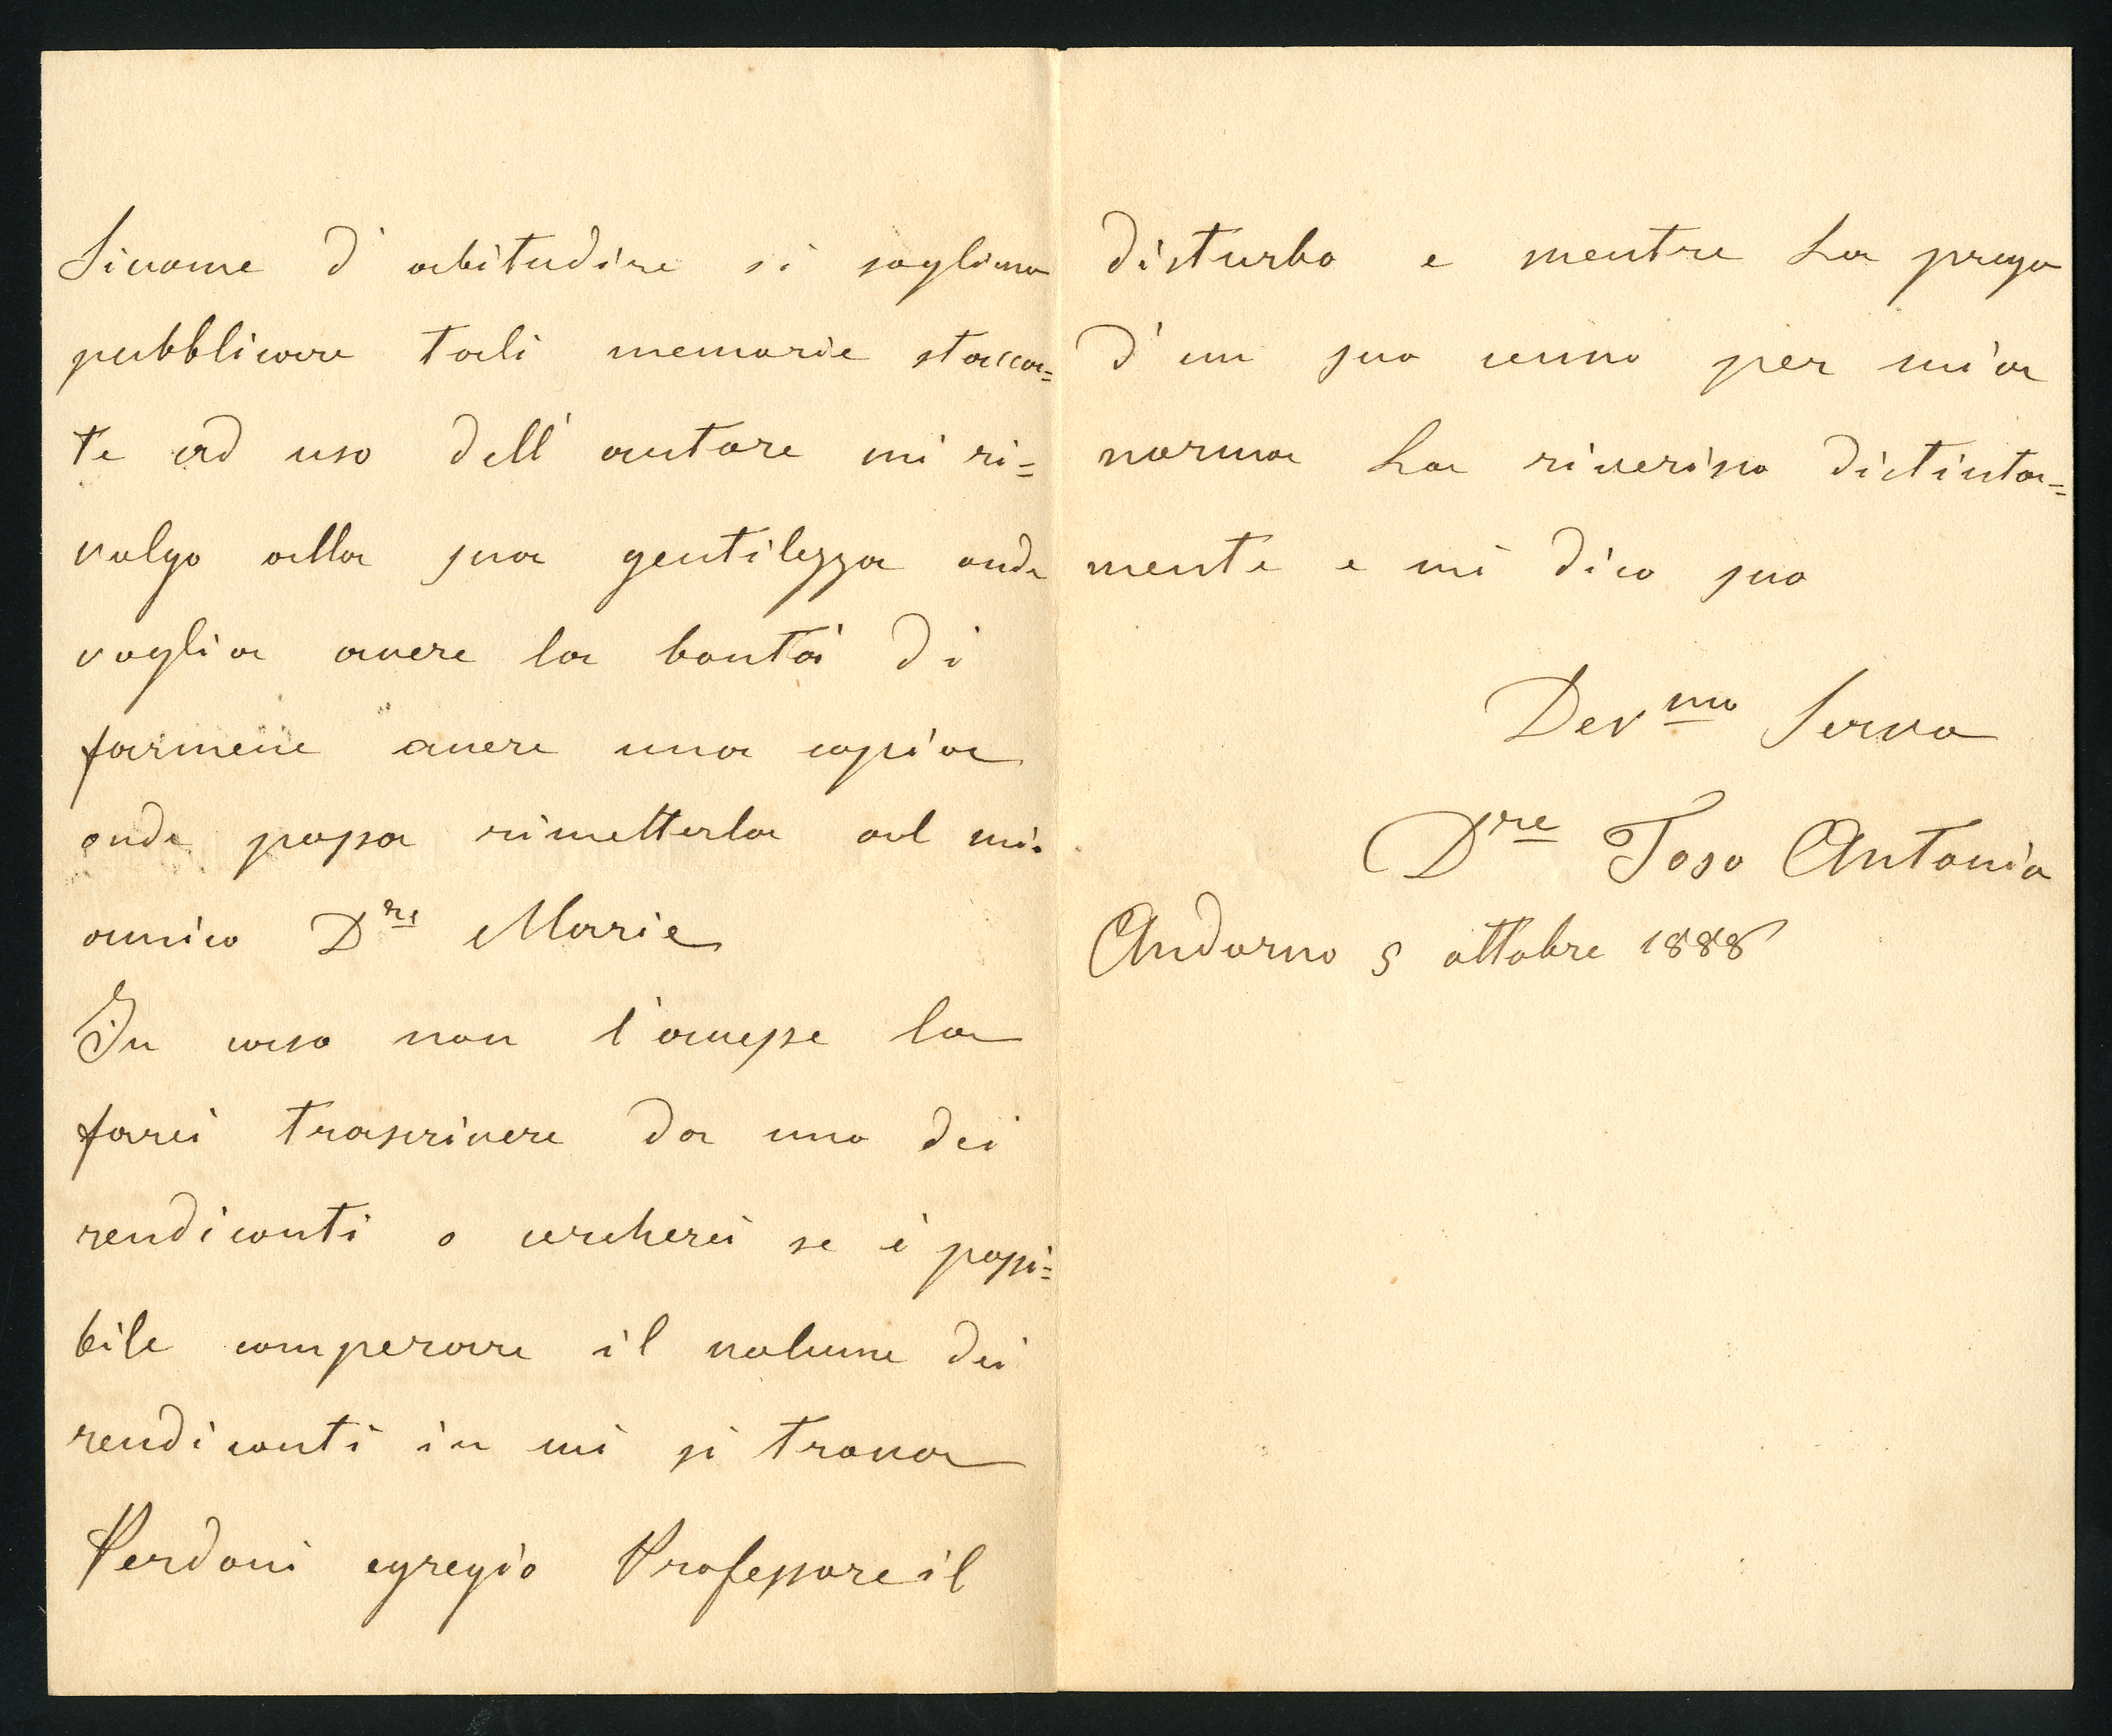 Siccome d'abitudine si sogliono
pubblicare tali memorie stacca=
te ad uso dell'autore mi ri=
volgo alla sua gentilezza onde
voglia avere la bontà di
farmene avere una copia
onde possa rimetterla al mio
amico D.re Marie
In caso non l'avesse la
farei trascrivere da uno dei
rendiconti o cercherei se è possi=
bile comperare il volume dei
rendiconti in cui si trova
Perdoni egregio Professore il
disturbo e mentre La prego
d'un suo cenno per mia
norma La riverisco distinta=
mente e mi dico suo
Devmo Servo
Dre Toso Antonio
Andorno 5 ottobre 1888